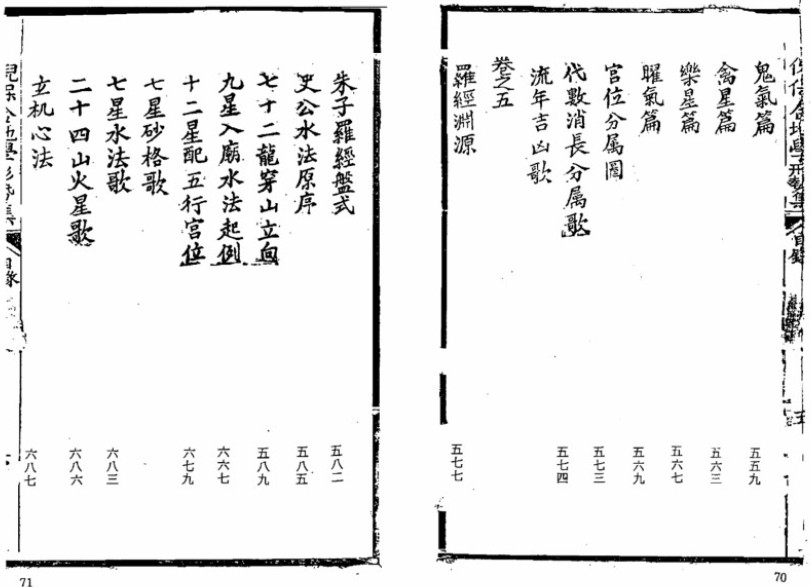 鬼氣篇 五五九
禽星篇 五六三
樂星篇 五六七
曜氣篇 五六九
宮位分属圖 五七三
代數消長分属歌 五七四
流年吉凶歌
卷之五
羅經淵源 五七七
70
朱子羅經盤式 五八二
史公水法原序 五八五
七十二龍穿山立向 五八九
九星入廟水法起例 六六七
十二星配五行宮位 六七九
七星砂格歌
七星水法歌 六八三
二十四山火星歌 六八六
玄机心法 六八七
71